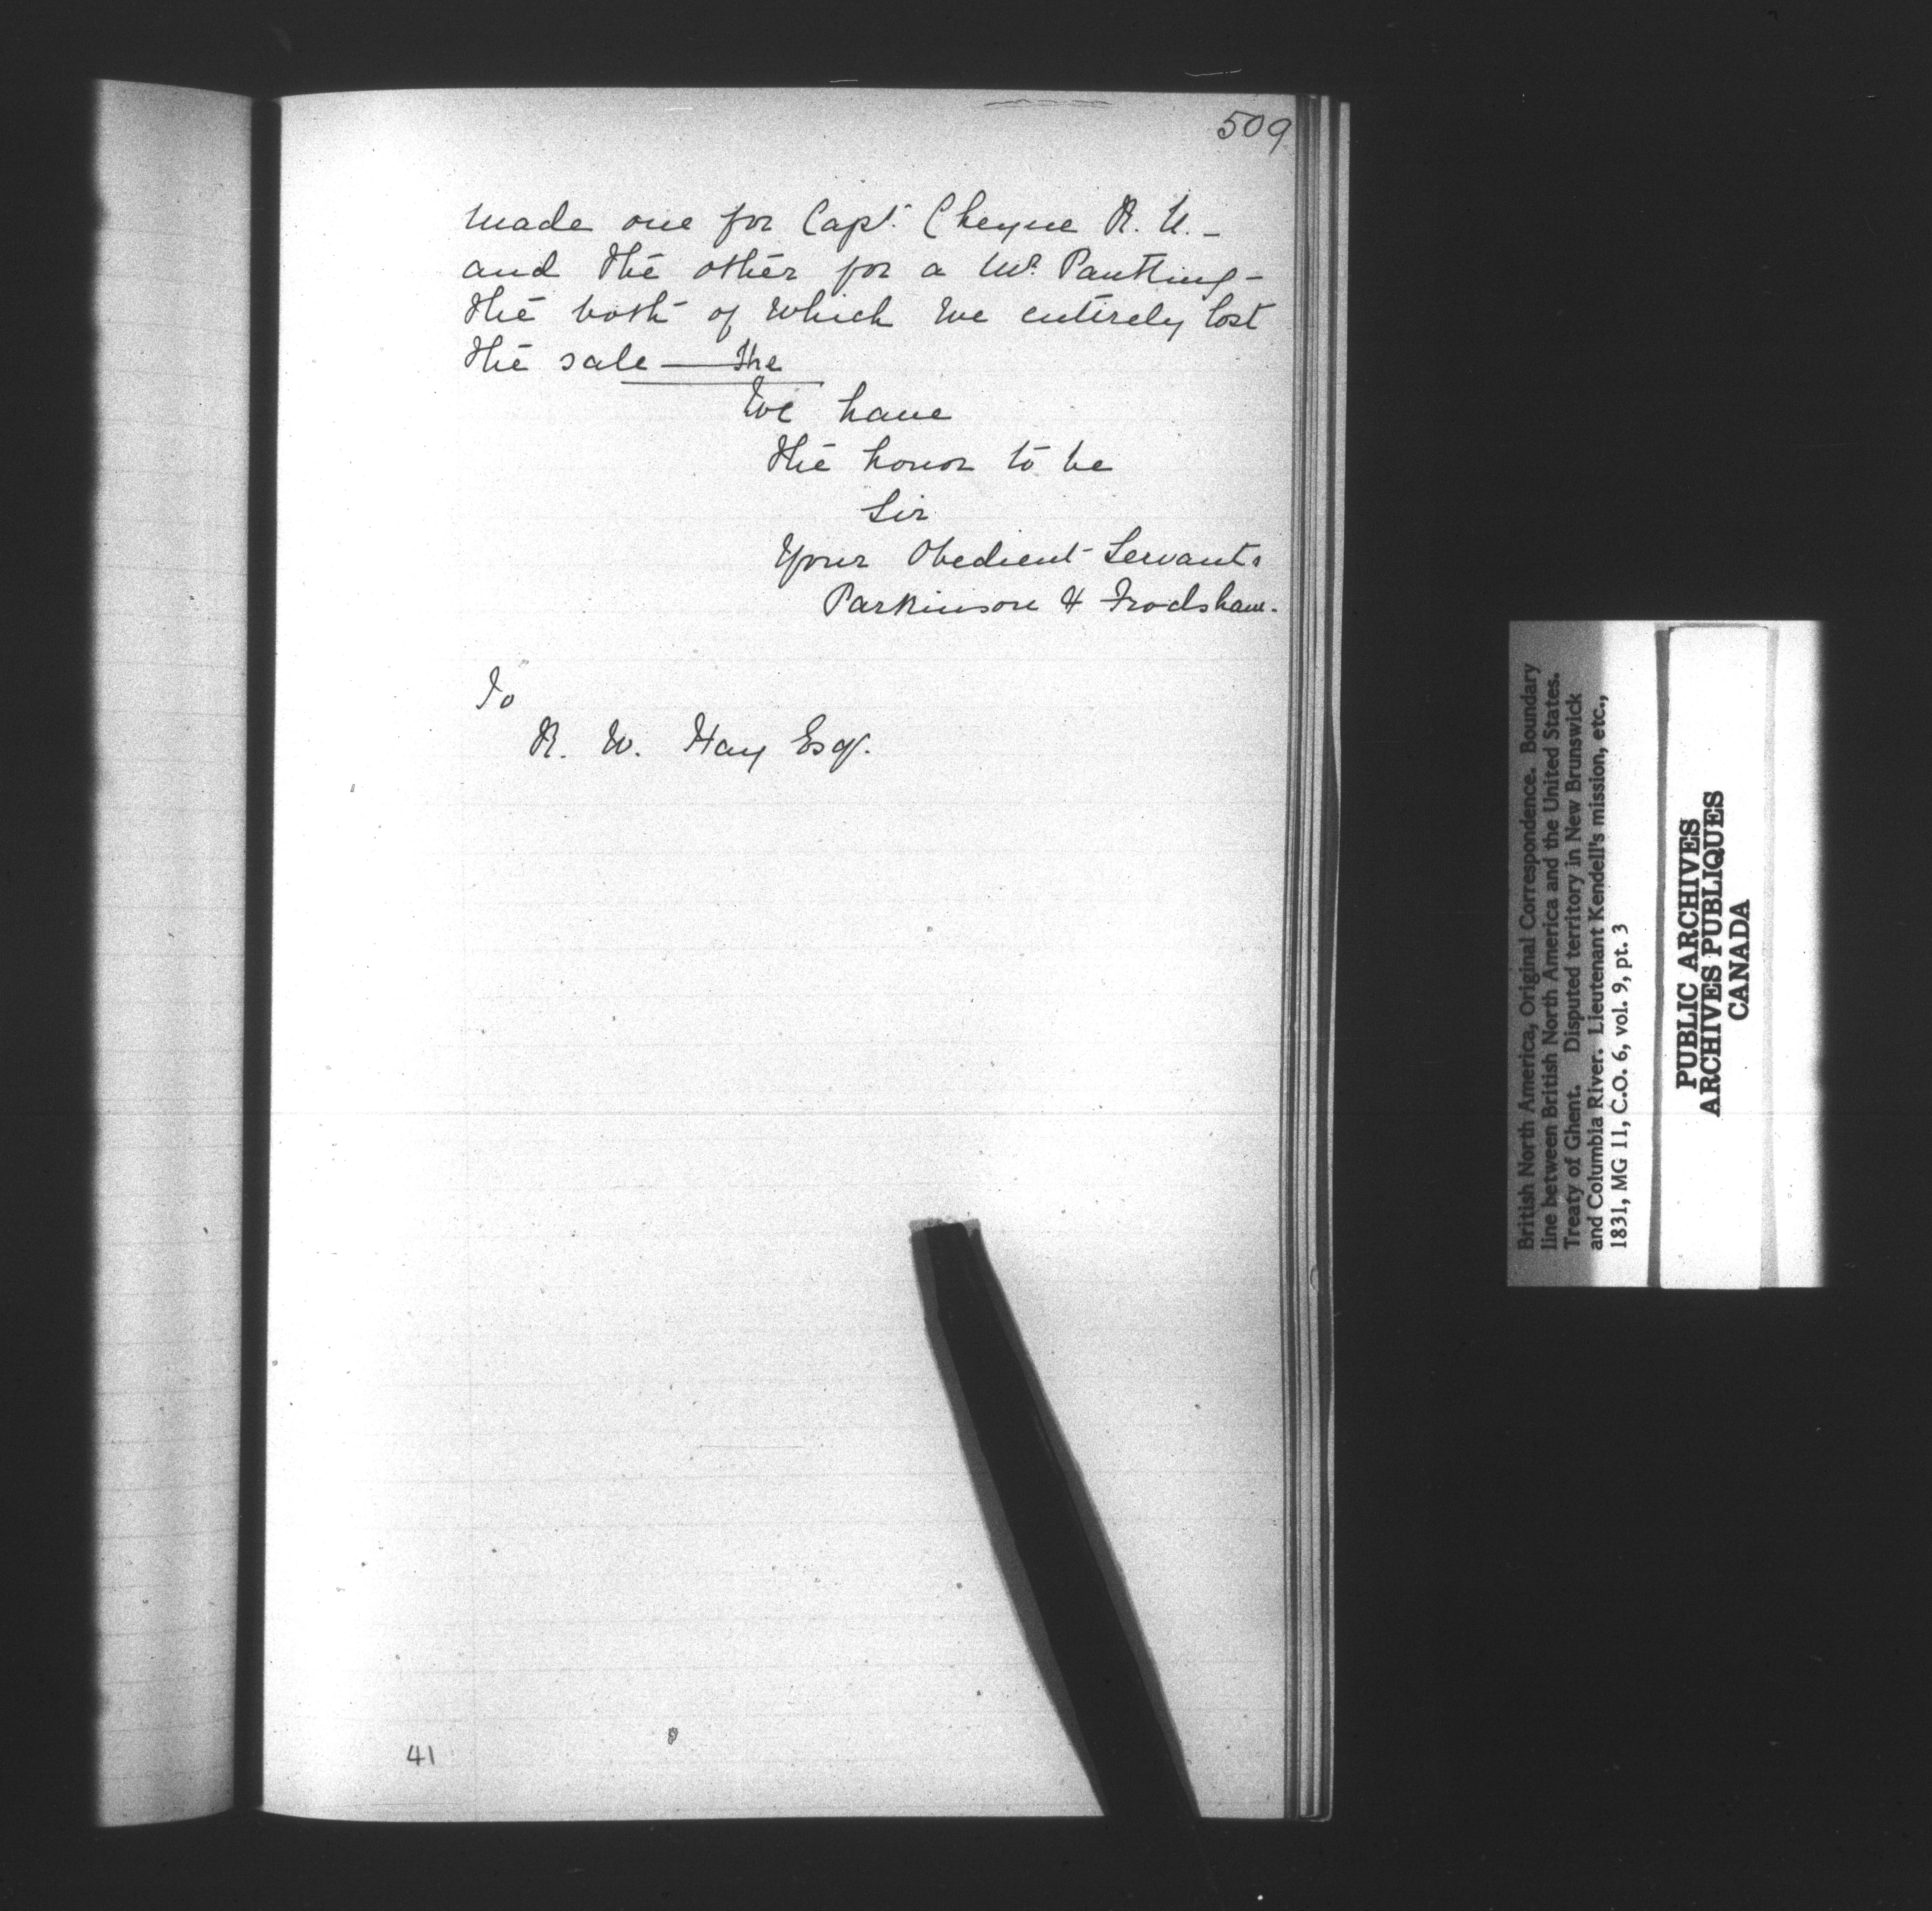 509
made one for Capt. Cheyne R. N. -
and the other for a Mr. Pantting -
the both of which we entirely lost
the sale — the
We have
the honor to be
Sir
Your Obedient Servants
Parkinson & Frodsham.
To
R. W. Hay Esqr.
41
British North America, Original Correspondence. Boundary
line between British North America and the United States.
Treaty of Ghent. Disputed territory in New Brunswick
and Columbia River. Lieutenant Kendell's mission, etc.,
1831, MG 11, C.O. 6, vol. 9, pt. 3
PUBLIC ARCHIVES
ARCHIVES PUBLIQUES
CANADA